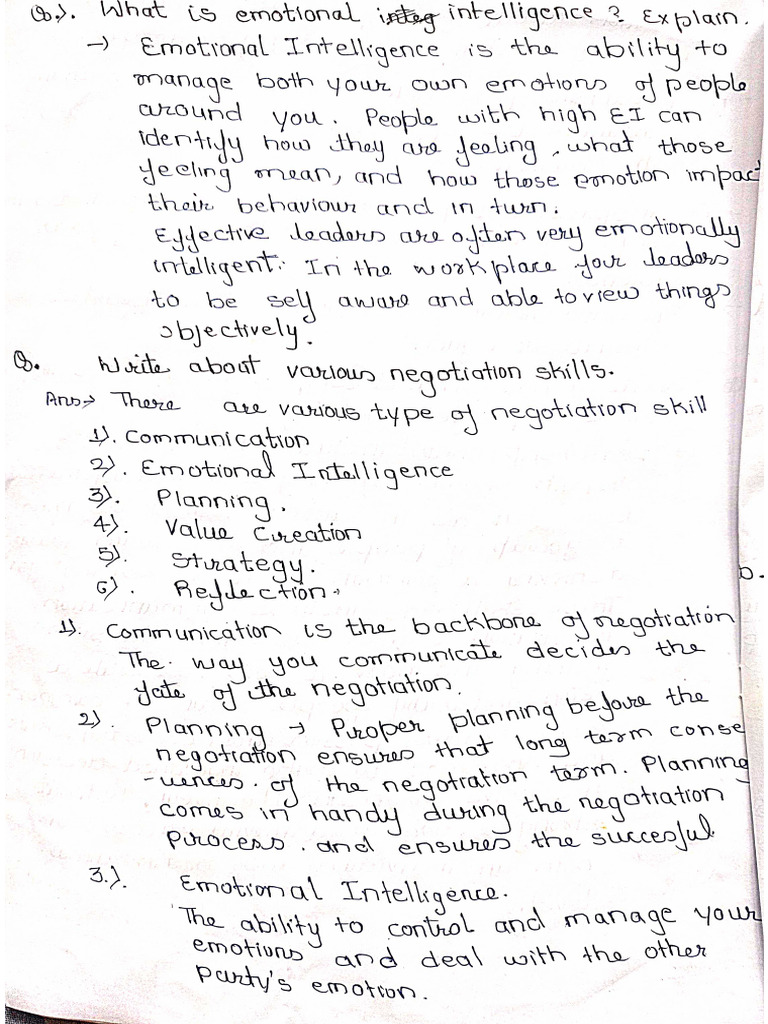 Q.). What is emotional integ intelligence? Explain.
→ Emotional Intelligence is the ability to
manage both your own emotions of people
around you. People with high EI can
identify how they are feeling, what those
feeling mean, and how those emotion impact
their behaviour and in turn.
Effective leaders are often very emotionally
intelligent. In the workplace for leaders
to be self aware and able to view things
objectively.
Q. Write about various negotiation skills.
Ans→ There are various type of negotiation skill
1). Communication
2). Emotional Intelligence
3). Planning.
4). Value Creation
5). Strategy.
6). Reflection.
1). Communication is the backbone of negotiation
The way you communicate decides the
fate of the negotiation.
2). Planning → Proper planning before the
negotiation ensures that long term conse
-uences. of the negotiation term. Planning
comes in handy during the negotiation
Process. and ensures the succesful
3.). Emotional Intelligence.
The ability to control and manage your
emotions and deal with the other
Party's emotion.